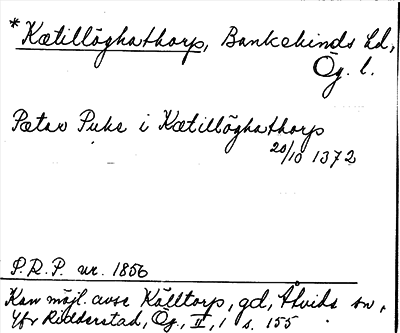 *Kætillöghathorp, Bankekinds hd,
Ög. l.
Pætar Puke i Kætillöghathorp
20/10 1372
P.R.P. nr. 1856
Kan möjl. avse Källtorp, gd, Åtvids sn,
Jfr Ridderstad, Ög., II, 1 s. 155.